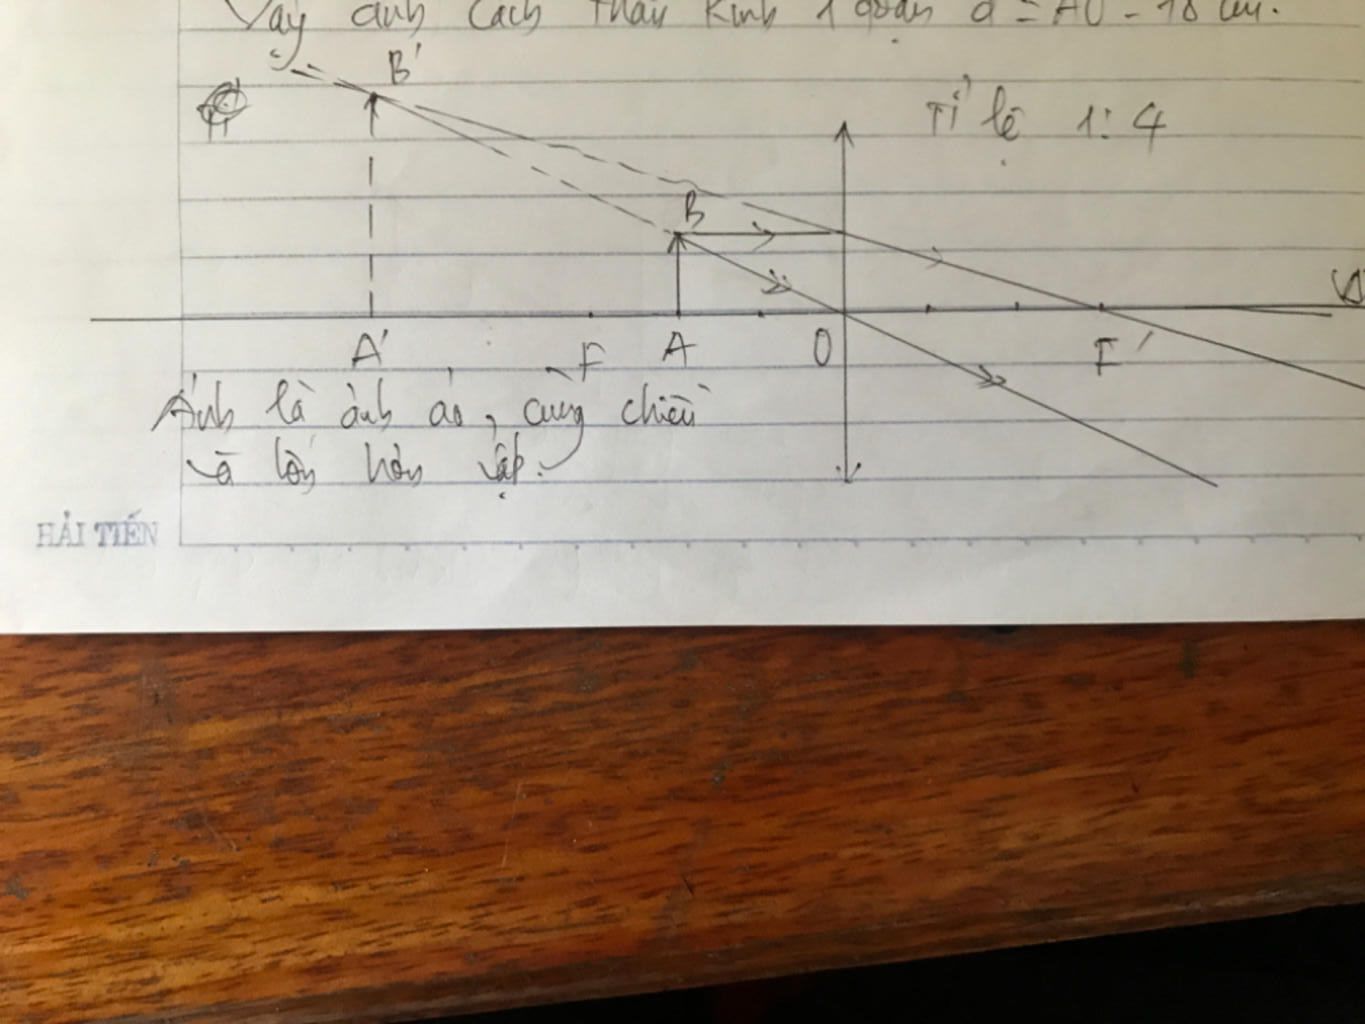 Vậy ảnh cách thấu kính 1 đoạn d' = A'O = 18 cm.
B'
Tỉ lệ 1:4
B
Δ
A' F A O F'
Ảnh là ảnh ảo, cùng chiều
và lớn hơn vật.
HẢI TIẾN